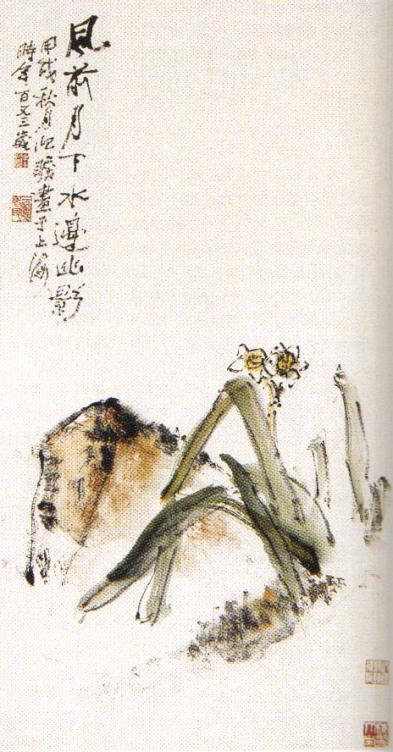 風前月下水邊幽影
甲戌秋月屺瞻畫于上海
時年百又三歲